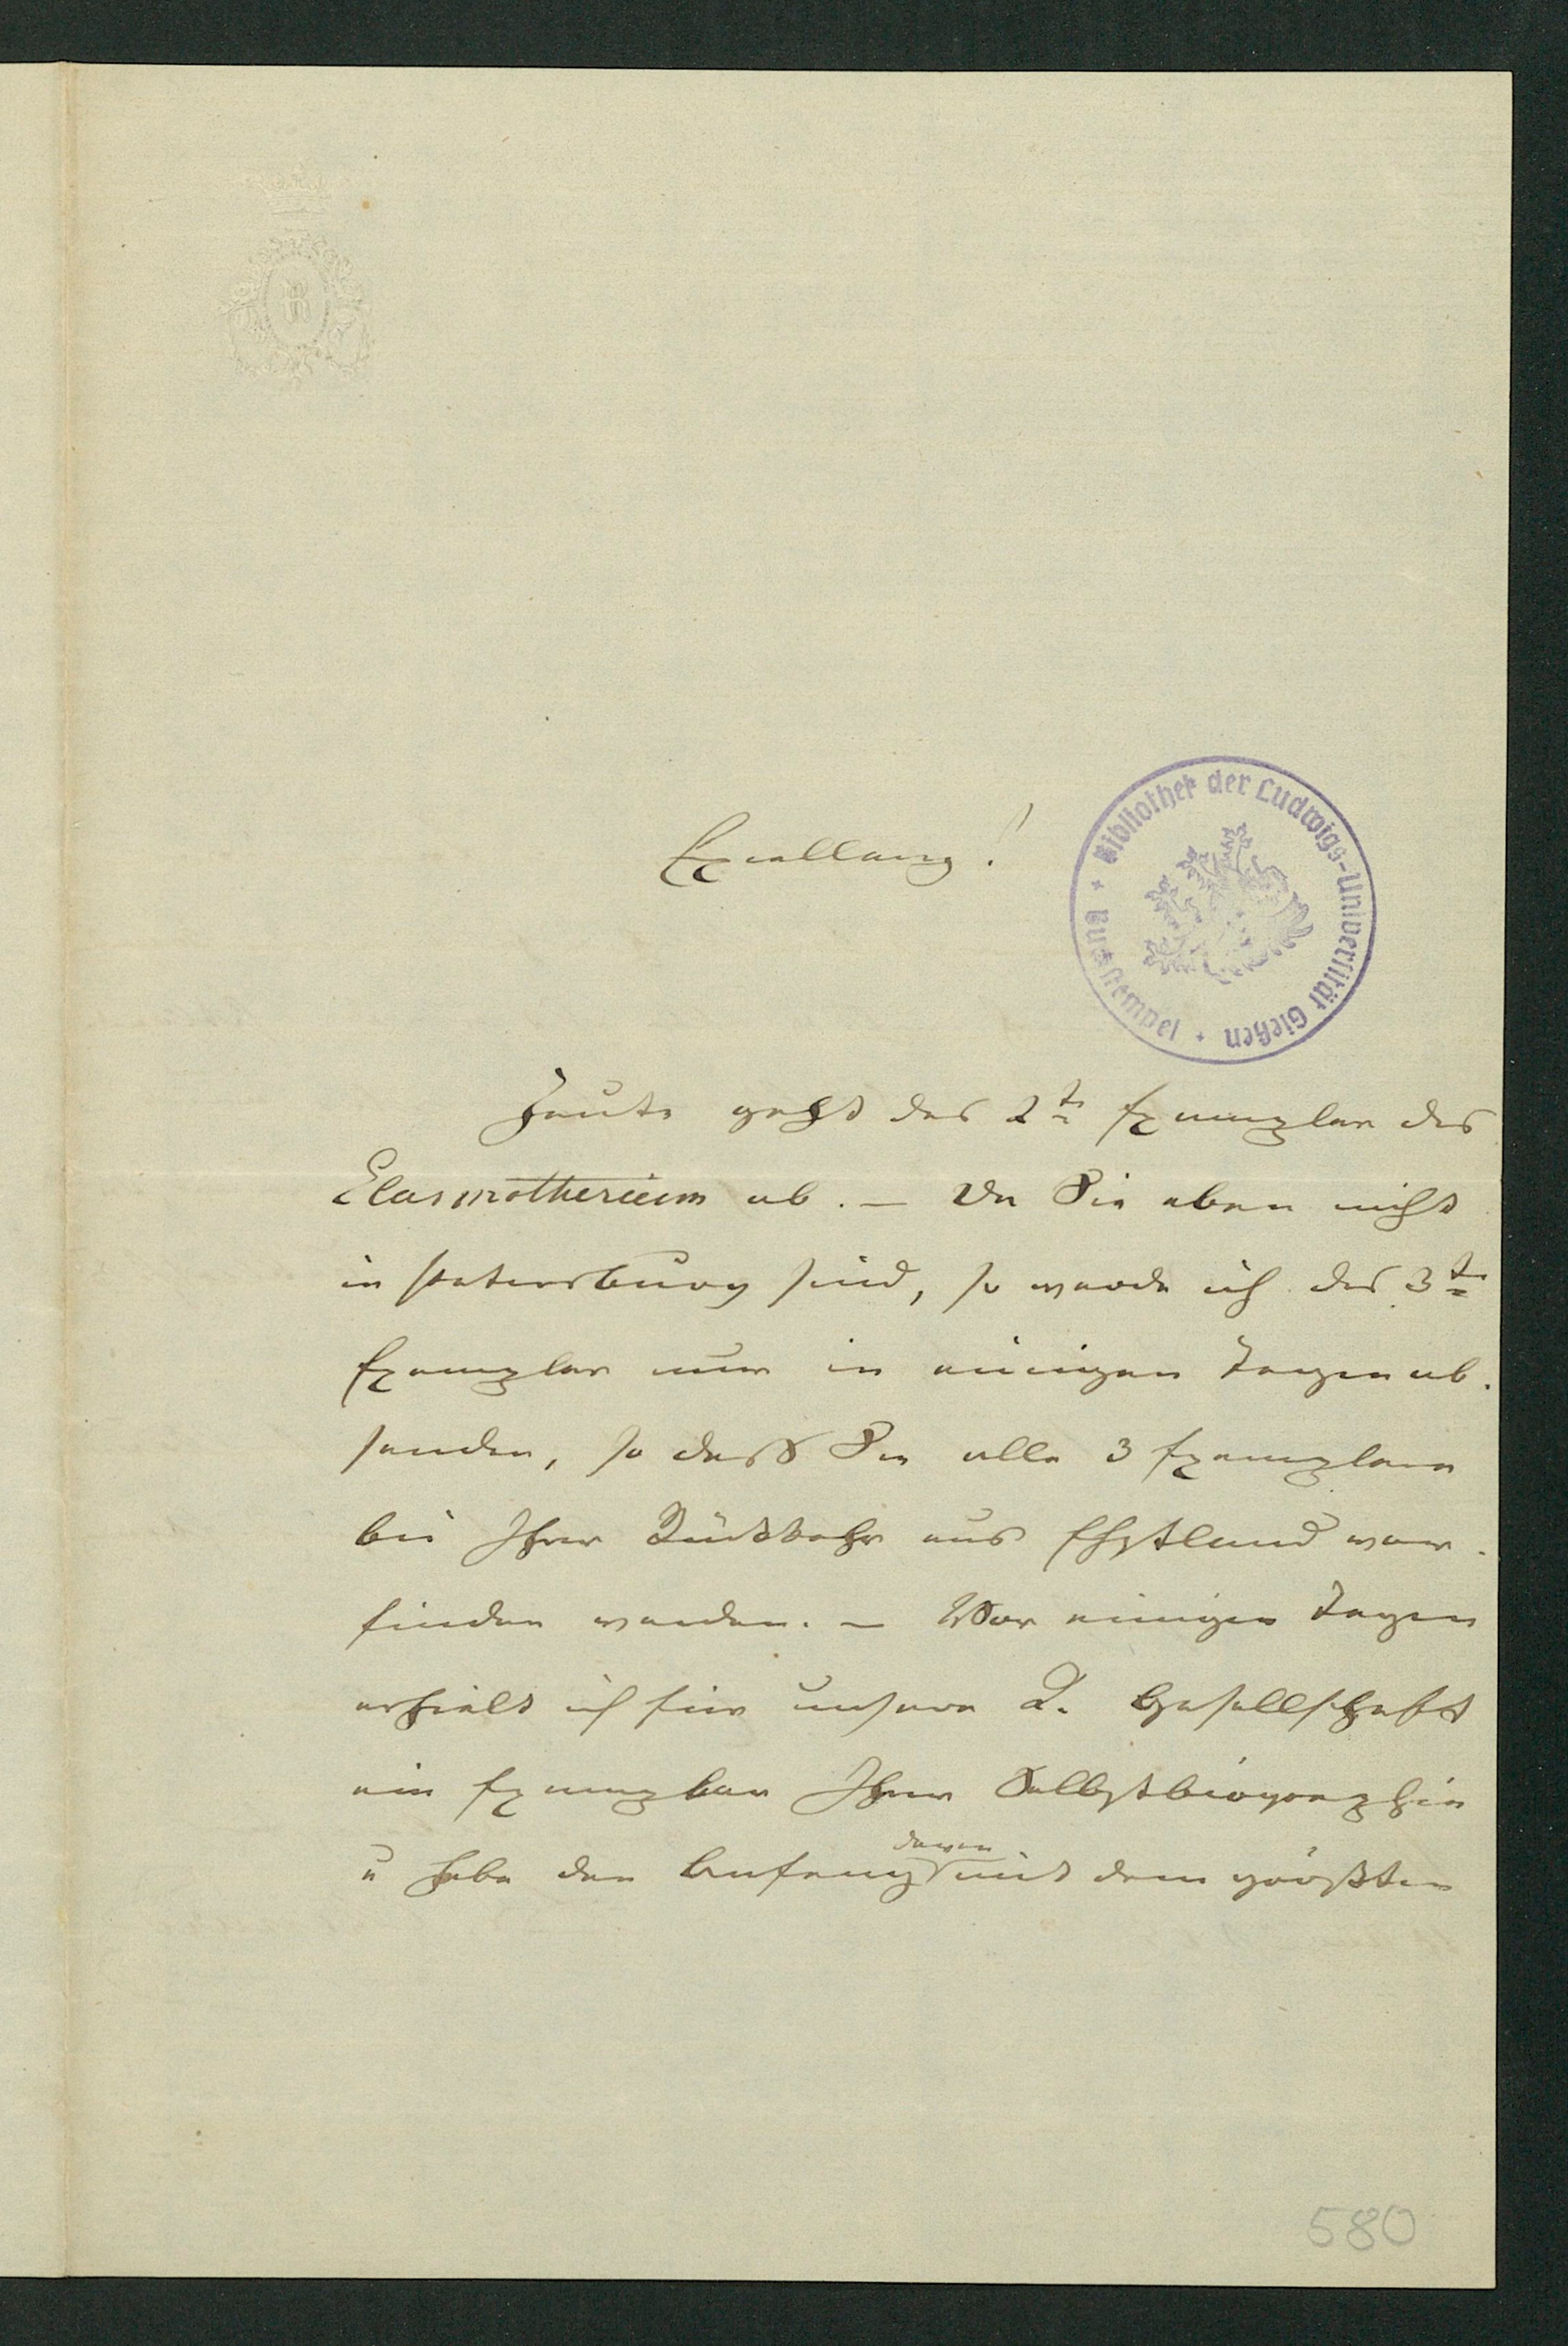 R
Excellenz!
Bibliothek der Ludwigs-Universität Gießen
Heute geht das 2te Exemplar des
Elasmotherium ab. – Da Sie aber nicht
in Petersburg sind, so werde ich das 3te
Exemplar nur in einigen Tagen ab-
senden, so daß Sie alle 3 Exemplare
bei Ihrer Rückkehr aus Ehstland vor-
finden werden. – Vor einigen Tagen
erhielt ich für unsere Gesellschaft
ein Exemplar Ihrer Selbstbiographie
u habe den Anfang davon mit dem größten
580